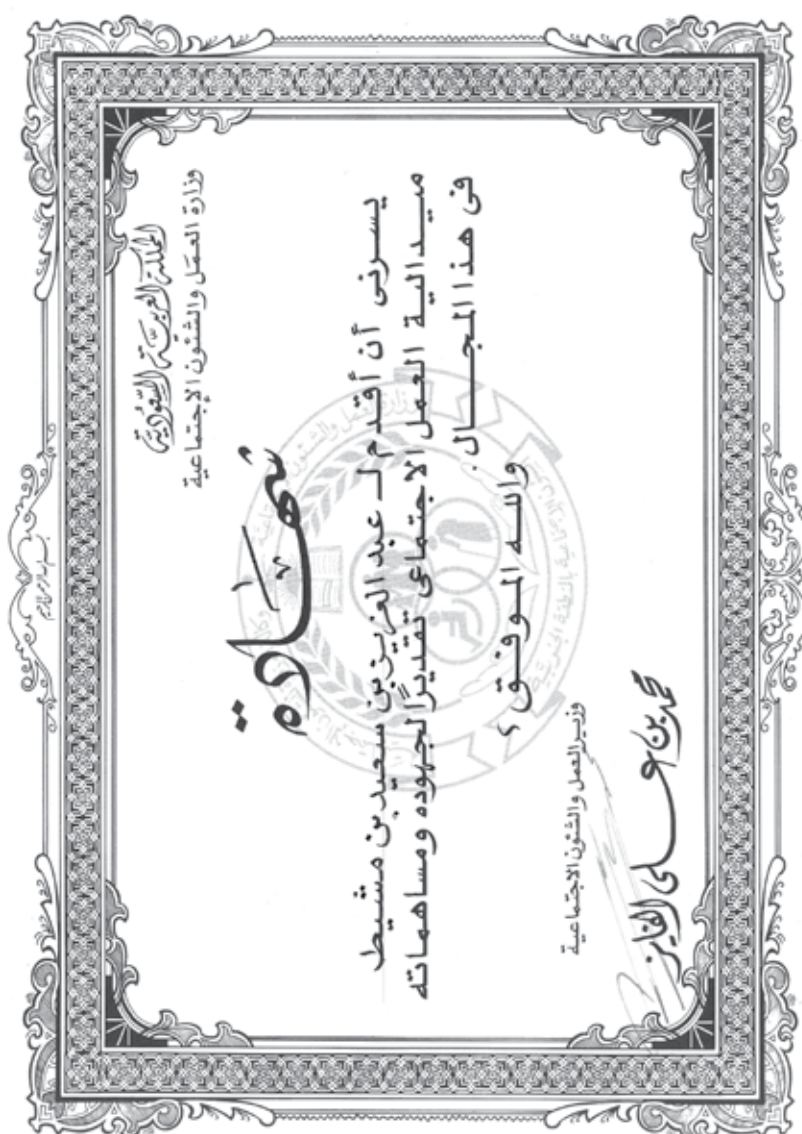 بسم الله الرحمن الرحيم
المملكة العربية السعودية
وزارة العمل والشئون الإجتماعية
شهادة
يسرنى أن أقدم لـ عبد العزيز بن سعيد بن مشيط
ميدالية العمل الاجتماعى تقديراً لجهوده ومساهماته
فى هذا المجال.
والله الموفق ،
وزير العمل والشئون الاجتماعية
محمد بن على الفايز